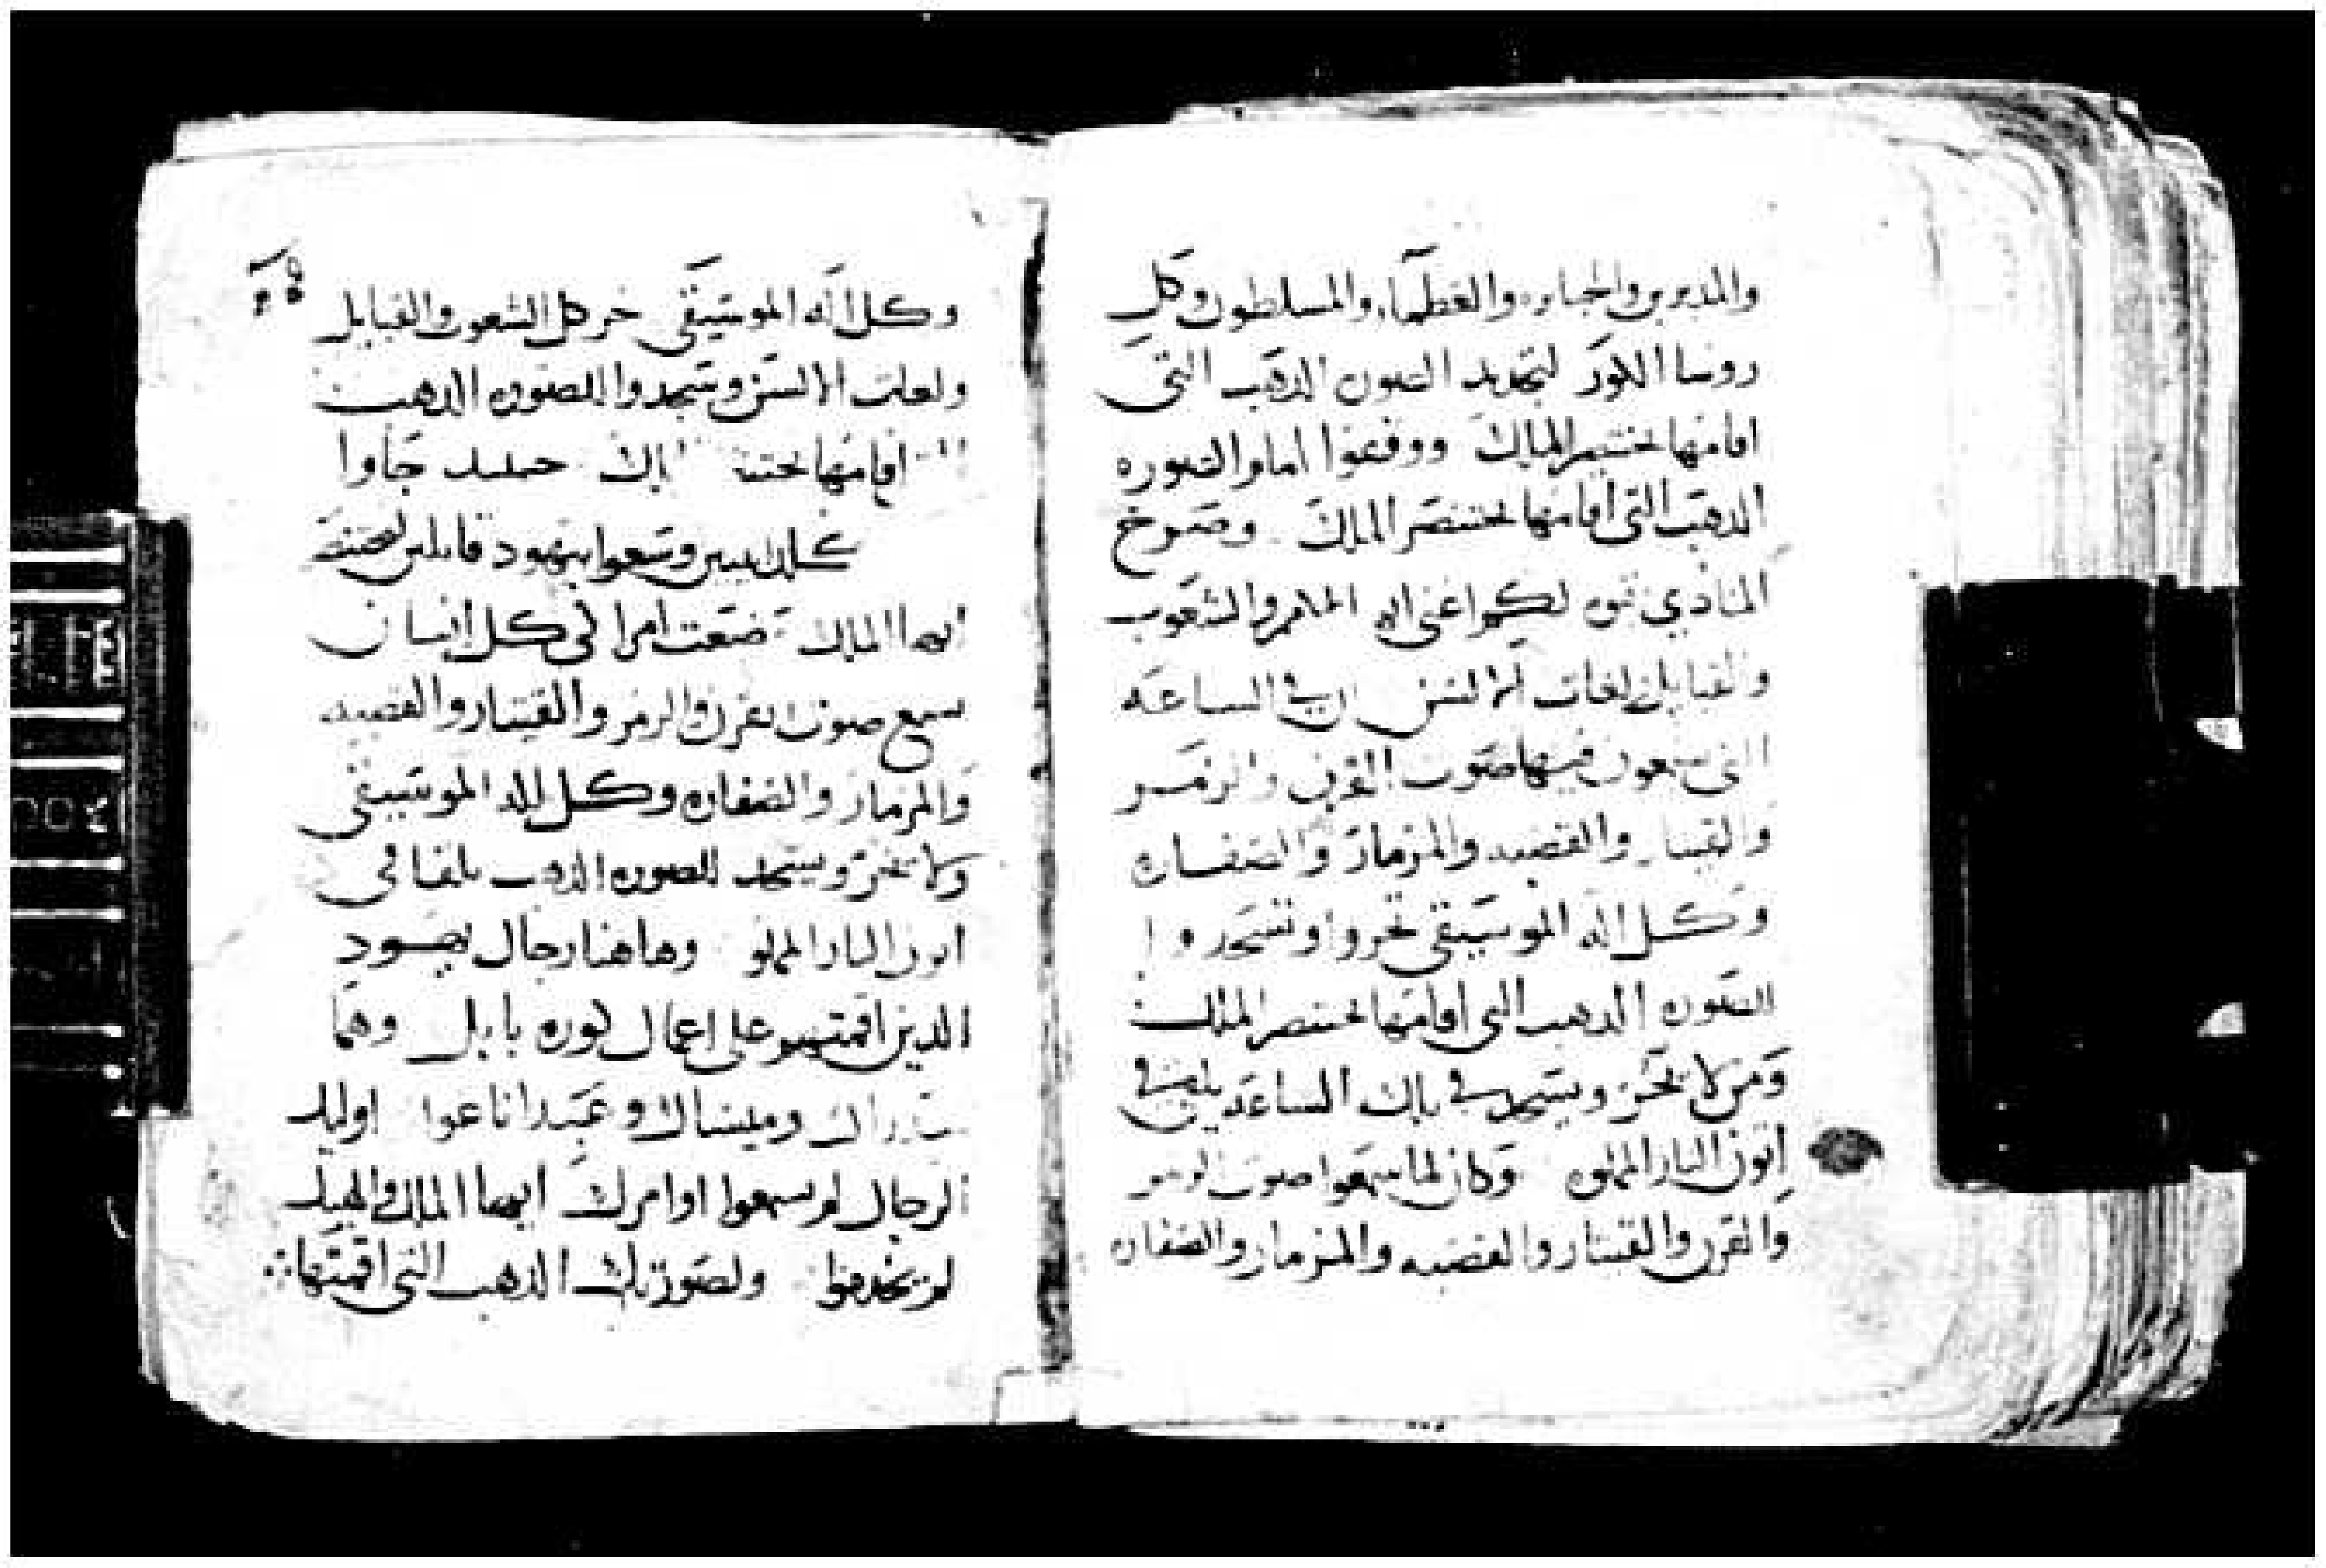 والمدبرين والجبابره والعظمآء والمسلطون وكل
روسا الكور لتجديد الصوره الدهب التى
اقامها بختنصر الملك ووقفوا امام الصوره
الدهب التى اقامها بختنصر الملك وصرخ
المنادي بقوه لكم اعنى ايها الامم والشعوب
والقبايل ولغات الالسن ان في الساعه
التى تسمعون فيها صوت القرن والزمر
والقيتار والقضيبه والمزمار والصفاره
وكل اله الموسيقى تخروا وتسجدوا
للصوره الدهب التى اقامها بختنصر الملك
ومن لا يخر ويسجد في تلك الساعه يلقى في
اتون النار المملوه وكان لما سمعوا صوت الزمر
والقرن والقيتار والقضيبه والمزمار والصفاره
وكل اله الموسيقى خر كل الشعوب والقبايل
ولغات الالسن وسجدوا للصوره الدهب
اقامها حينيد جاوا
كلدانيين وسعوا بيهود قايلين لبختنصر
ايها الملك وضعت امرا لى كل انسان
يسمع صوت القرن والزمر والقيتار والقضيبه
والمزمار والصفاره وكل اله الموسيقى
ولا يخر ويسجد للصوره الدهب يلقا فى
اتون النار المملو وهاهنا رجال يهود
الدين اقمتهم على اعمال كوره بابل وهما
سدراك وميساك وعبداناعوا اوليك
الرجال لم يسمعوا اوامرك ايها الملك والهتك
لم يخدموا ولصورتك الدهب التى اقمتها